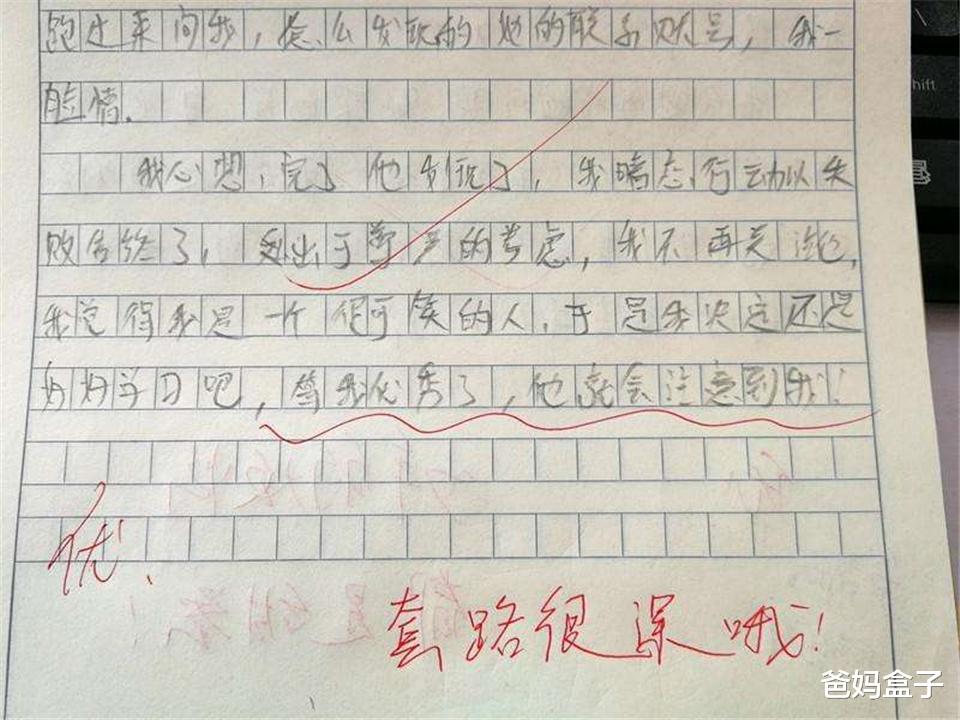 跑过来问我，怎么发现的她的联系账号，我一
脸懵.
我心想，完了他发现了，我暗恋行动以失
败告终了，到出于尊严的考虑，我不再关注他，
我觉得我是一个很可笑的人.于是我决定还是
好好学习吧，当我优秀了，他就会注意到我！
优.
套路很深哦！
爸妈盒子
shift